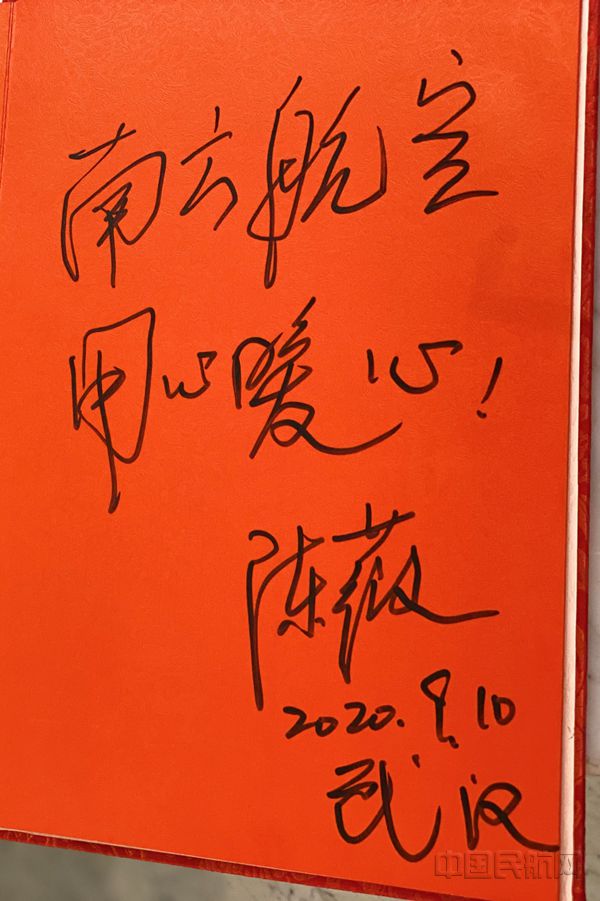 南方航空
用心暖心！
陈薇
2020.9.10
武汉
中国民航网